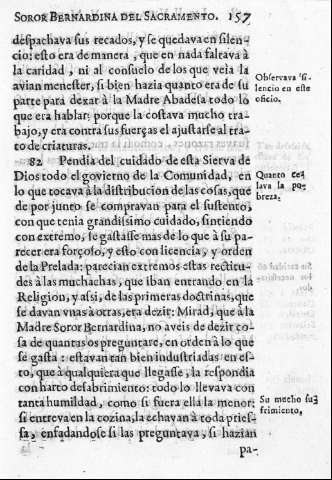 SOROR BERNARDINA DEL SACRAMENTO. 157
despachava sus recados, y se quedava en silen-
cio: esto era de manera, que en nada faltava à
la caridad, ni al consuelo de los que veìa la
avian menester, si bien hazia quanto era de su
parte para dexar à la Madre Abadesa todo lo
que era hablar: porque la costava mucho tra-
bajo, y era contra sus fuerças el ajustarse al tra-
to de criaturas.
Observava si-
lencio en este
oficio.
82 Pendia del cuidado de esta Sierva de
Dios todo el govierno de la Comunidad, en
lo que tocava à la distribucion de las cosas, que
de por junto se compravan para el sustento,
con que tenia grandissimo cuidado, sintiendo
con extremo, se gastasse mas de lo que à su pa-
recer era forçoso, y esto con licencia, y orden
de la Prelada: parecian extremos estas rectitu-
des à las muchachas, que iban entrando en la
Religion, y assi, de las primeras doctrinas, que
se davan vnas à otras, era dezir: Mirad, que à la
Madre Soror Bernardina, no aveis de dezir co-
sa de quantas os preguntare, en orden à lo que
se gasta: estavan tan bien industriadas en es-
to, que à qualquiera que llegasse, la respondia
con harto desabrimiento: todo lo llevava con
tanta humildad, como si fuera ella la menor:
si entreva en la cozina, la echavan à toda pries-
sa, enfadandose si las preguntava, si hazian
Quanto ce-
lava la po-
breza.
Su mucho suf-
frimiento.
pa-